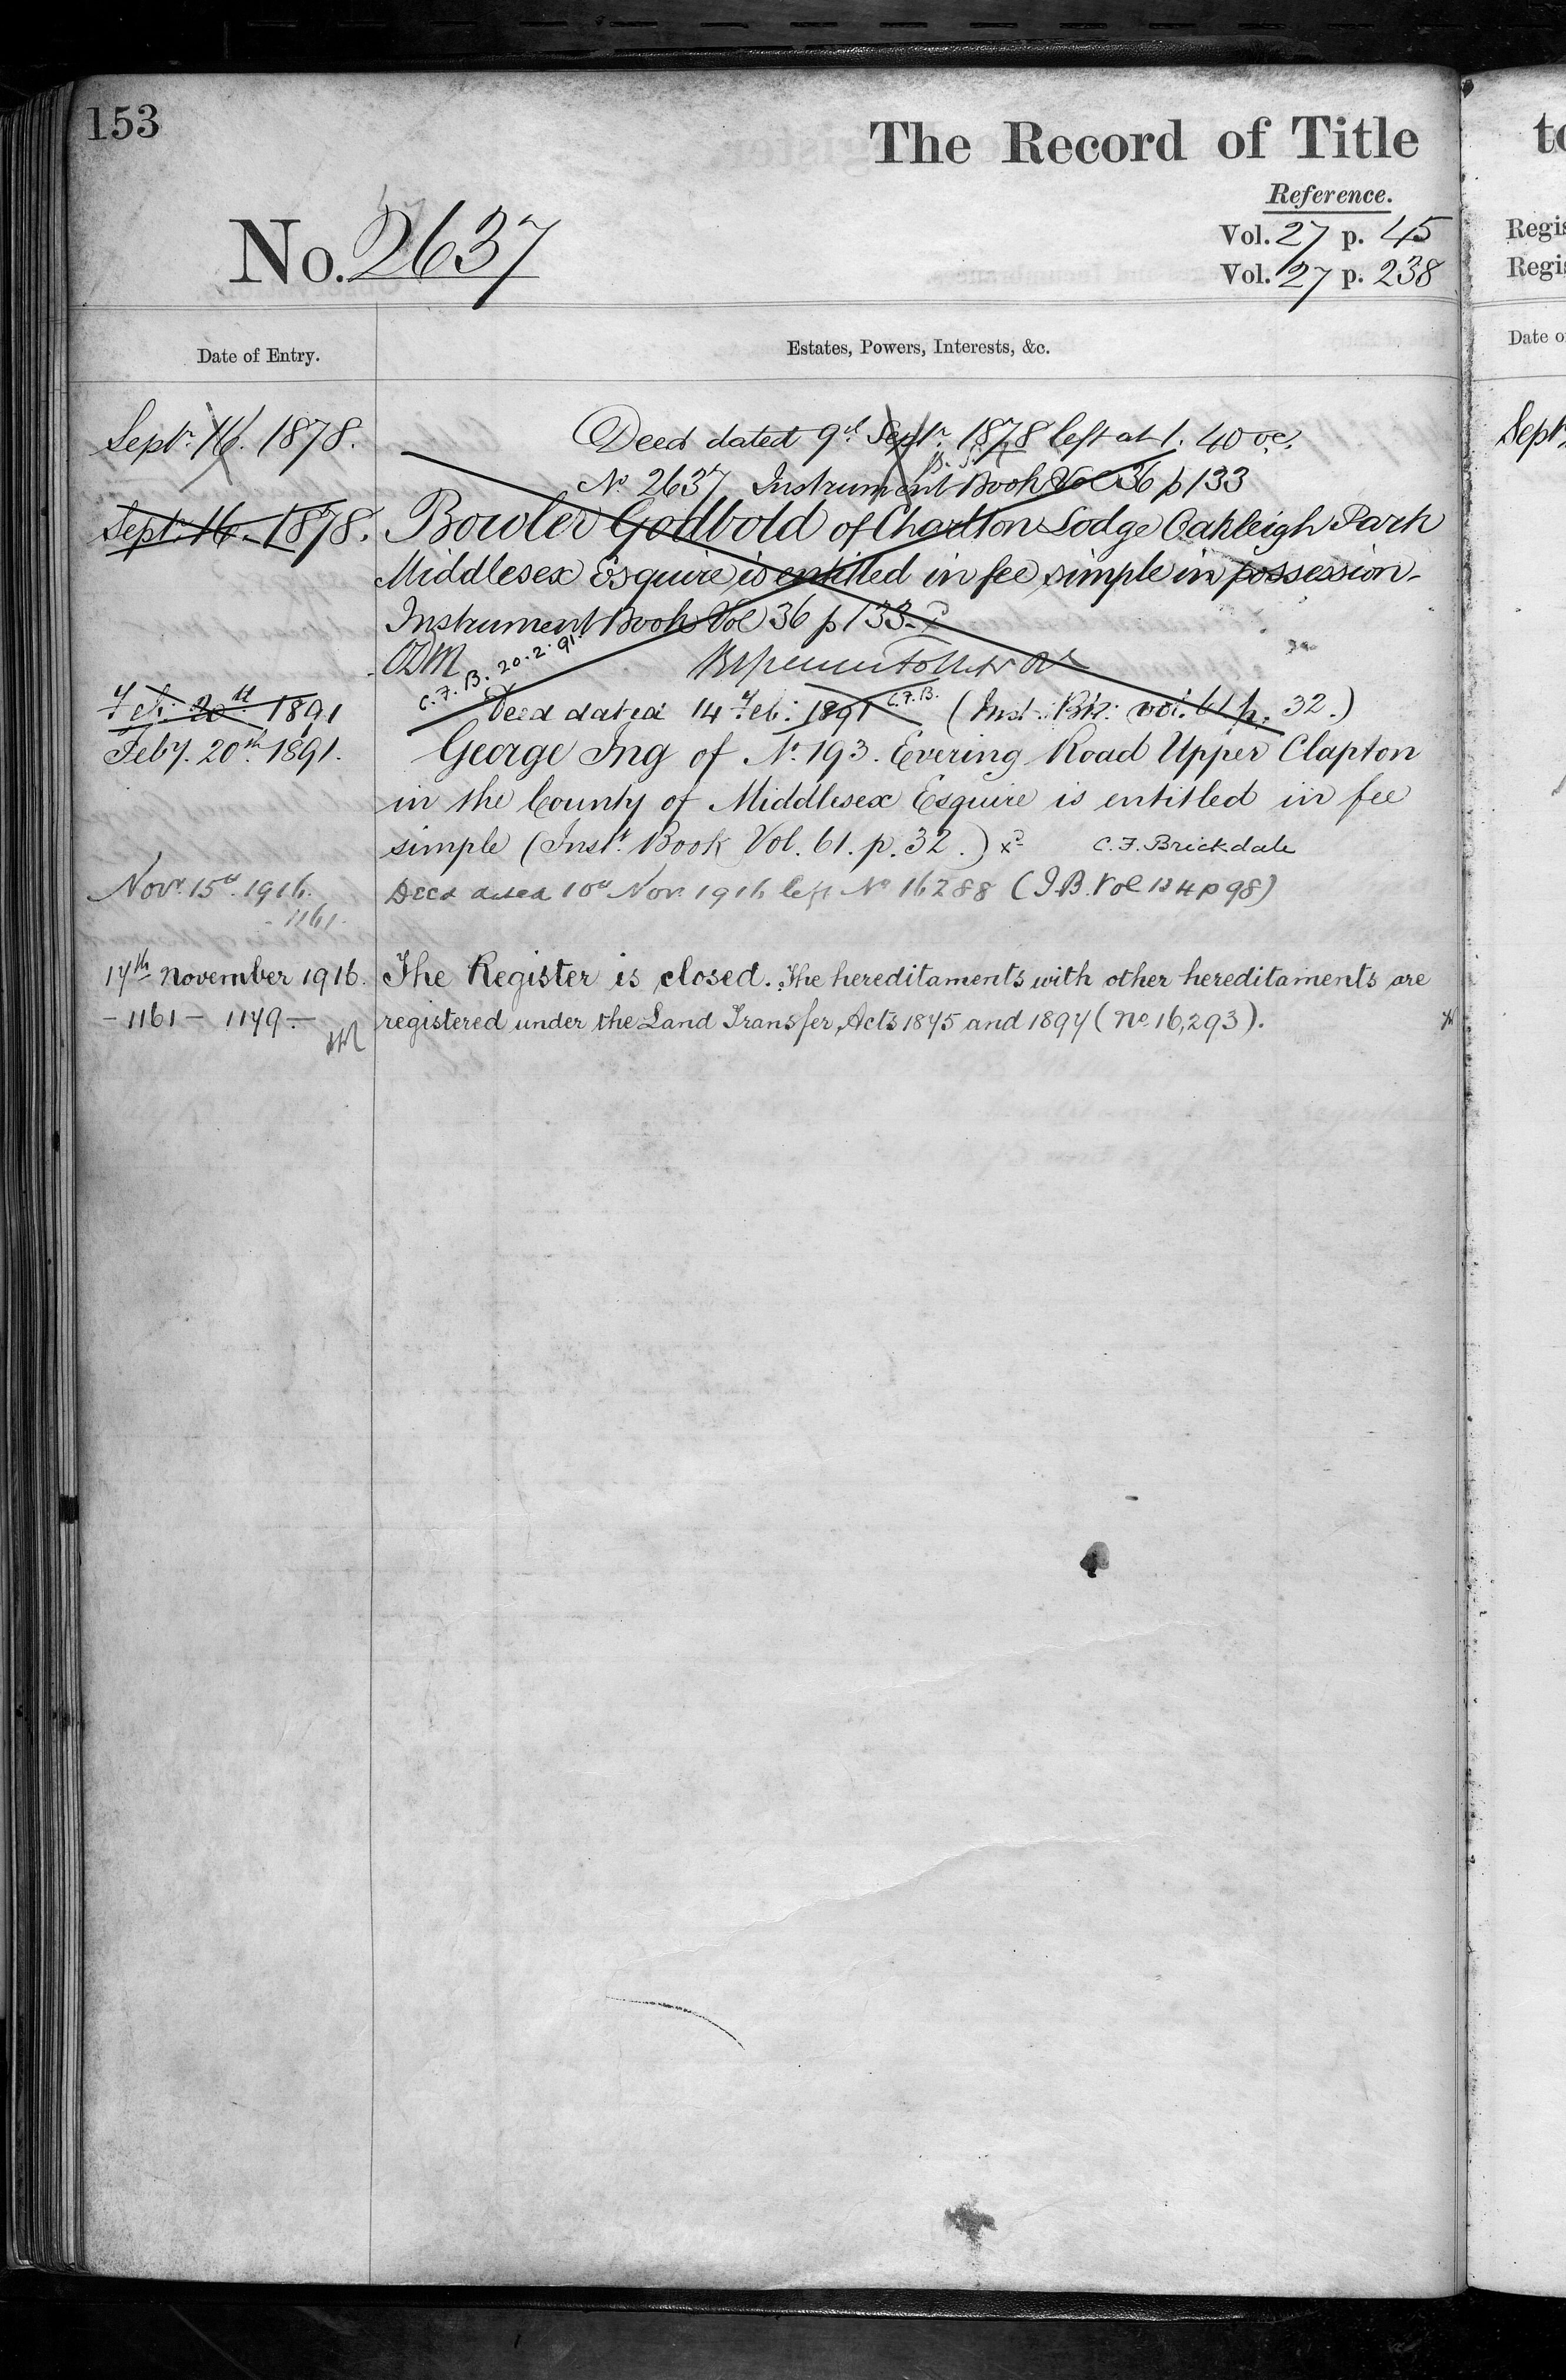 153
The Record of Title
Reference.
No. 2637
Vol. 27 p. 45
Vol. 27 p. 238
Date of Entry.
Estates, Powers, Interests, &c.
Septr. 16. 1878.
Deed dated 9th Septr. 1878 left at 1. 40
No. 2637 Instrument Book Vol 36 p 133
Septr. 16. 1878.
Bowler Godbold of Charlton Lodge Oakleigh Park
Middlesex Esquire is entitled in fee simple in possession.
Instrument Book Vol 36 p 133
C.F.B. 20.2.91.
Feb: 20th 1891
Deed dated 14 Feb: 1891 C.F.B. (Inst: Bk: vol. 61 p. 32.)
Feby. 20th 1891.
George Ing of No. 193. Evering Road Upper Clapton
in the County of Middlesex Esquire is entitled in fee
simple (Inst. Book Vol. 61. p. 32.) C.F. Brickdale
Novr. 15th 1916.
Deed dated 10th Nov. 1916 left No 16288 (I.B. Vol 124 p 98)
- 1161 -
17th November 1916.
The Register is closed. The hereditaments with other hereditaments are
- 1161 - 1179 -
registered under the Land Transfer Acts 1875 and 1897 (No. 16,293).
to
Regis
Regis
Date o
Sept